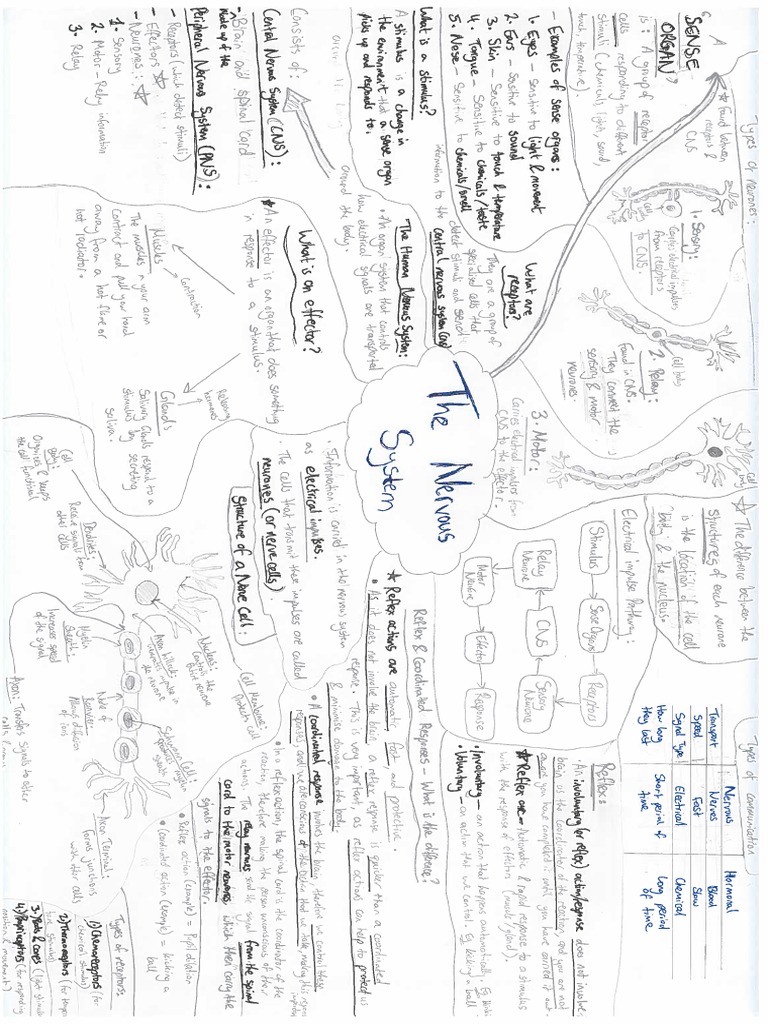 The Nervous
System
A
SENSE
ORGAN
is: A group of receptor
cells responding to different
stimuli (chemicals, light, sound
touch, temperature).
- Examples of sense organs:
1. Eyes - sensitive to light & movement
2. Ears - Sensitive to sound
3. Skin - Sensitive to touch & temperature
4. Tongue - Sensitive to chemicals/taste
5. Nose - Sensitive to chemicals/smell
What is a stimulus?
A stimulus is a change in
the environment that a sense organ
picks up and responds to.
Consists of:
Central Nervous System (CNS):
- Brain and spinal cord
Peripheral Nervous System (PNS):
Made up of the
- Receptors (which detect stimuli)
- Effectors
- Neurones:
1. Sensory
2. Motor - Relay information
3. Relay
The Human Nervous System:
• An organ system that controls
how electrical signals are transported
around the body.
What are
receptors?
They are a group of
specialised cells that
detect stimuli and send
information to the central nervous system (CNS)
What is an effector?
An effector is an organ that does something
in response to a stimulus.
Contraction
Muscles
The muscles in your arm
contract and pull your hand
away from a hot flame or
hot radiator.
Releasing
hormones
Glands
Salivary Glands respond to a
stimulus by secreting
saliva.
Types of neurones:
Found between
receptors &
CNS
1. Sensory:
Carries electrical impulses
from receptors
to CNS.
2. Relay:
Found in CNS.
They connect the
sensory & motor
neurones
Cell body
3. Motor:
Carries electrical impulses from
CNS to the effector.
The difference between the
structures of each neurone
is the location of the cell
body & the nucleus.
Electrical impulse Pathway:
Stimulus
Sense Organs
Receptors
Sensory
Neurone
CNS
Relay
Neurone
Motor
Neurone
Effector
Response
Types of communication
Nervous
Hormonal
Transport
Nerves
Blood
Speed
Fast
Slow
Signal type
Electrical
Chemical
How long
they last
Short period of
time
Long period
of time
Reflex:
• An involuntary (or reflex) action/response does not involve
brain as the coordinator of the reaction, and you are not
aware you have completed it until you have carried it out.
Reflex arc - Automatic & rapid response to a stimulus
with the response of effectors (muscle/gland).
• Involuntary - an action that happens automatically.
• Voluntary - an action that we control. Eg. kicking a ball
Reflex & Coordinated Responses - What is the difference?
Reflex actions are automatic, fast, and protective.
• As it does not involve the brain, a reflex response is quicker than a coordinated
response. This is very important, as reflex actions can help to protect us
& minimise damage to the body.
• A coordinated response involves the brain, therefore we control these
responses and we are conscious of the action that we take
• In a reflex action, the spinal cord is the coordinator of the
reaction, therefore making the person unconscious of their
actions. The relay neurones send the signal from the spinal
cord to the motor neurones, which then carry the
signals to the effector.
• Reflex action (example) = Pupil dilation
• coordinated action (example) = Kicking a
ball
Types of receptors:
1) Chemoreceptors (for
chemical stimulus)
2) Thermoreceptors
3) Rods & cones
4) Proprioceptors (for responding
• Information is carried in the nervous system
as electrical impulses.
• The cells that transmit these impulses are called
neurones (or nerve cells).
Structure of a Nerve Cell:
Cell
Body:
Organises & keeps
the cell functional
Dendrites:
Receive signals from
other cells
Nucleus:
Controls the
Entire neurone
Cell Membrane:
Protects cell
Axon hillock:
Myelin
Sheath:
Increases speed
of the signal
Node of
Ranvier:
Allows diffusion
of ions
Axon: Transfers signals to other
Axon Terminal:
forms junctions
with other cells